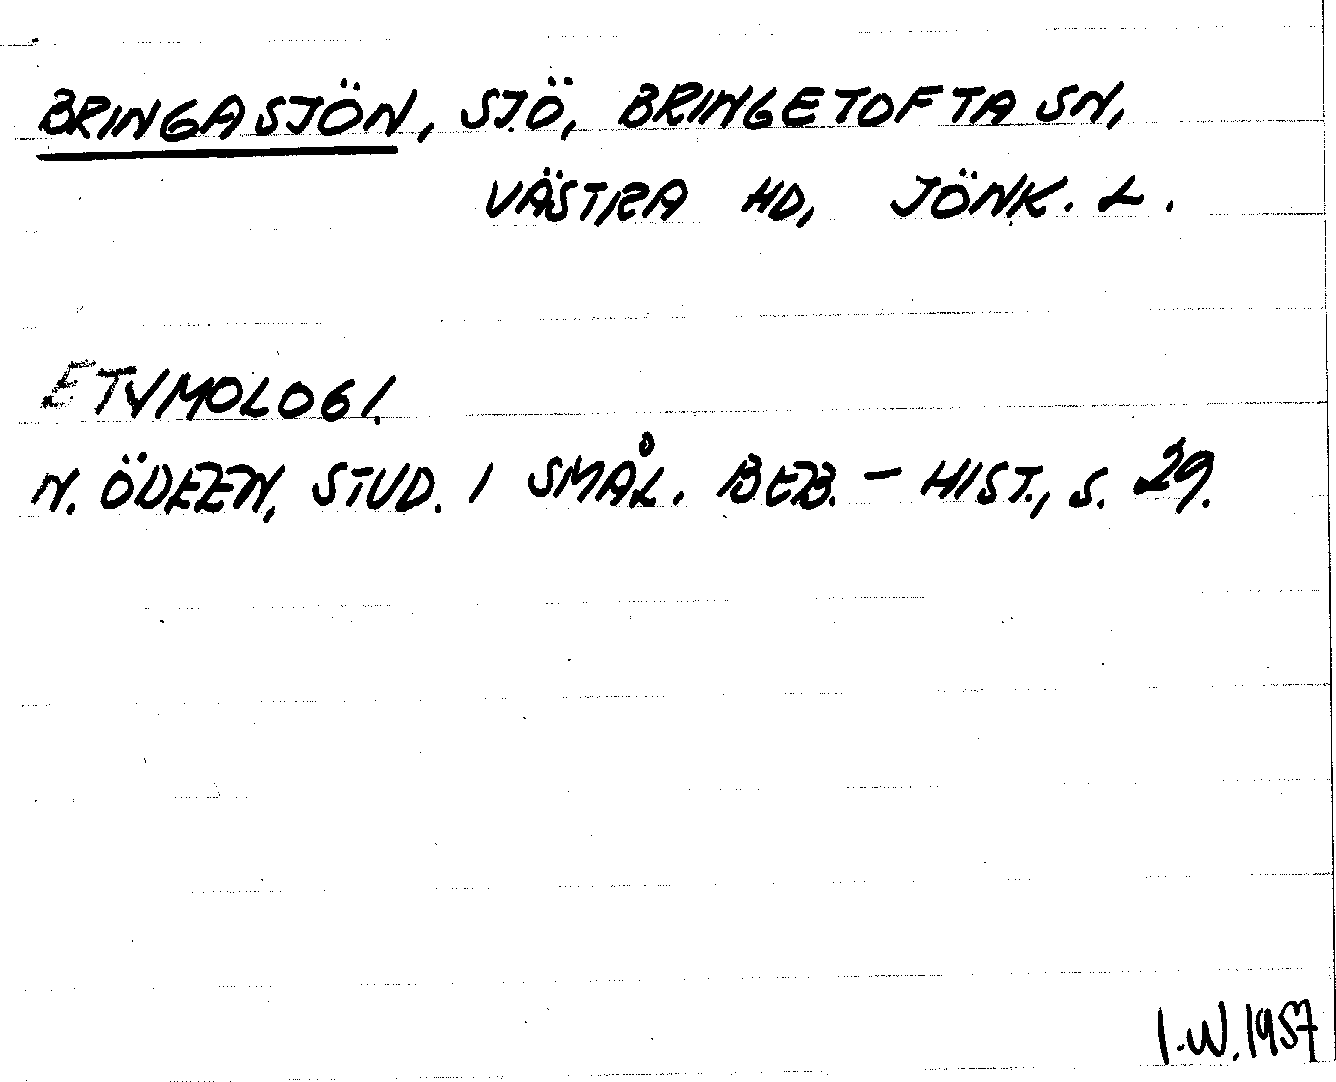 BRINGASJÖN, SJÖ, BRINGETOFTA SN,
VÄSTRA HD, JÖNK. L.
ETYMOLOGI.
N. ÖDEEN, STUD. I SMÅL. BEB. - HIST., S. 29.
I.W. 1957